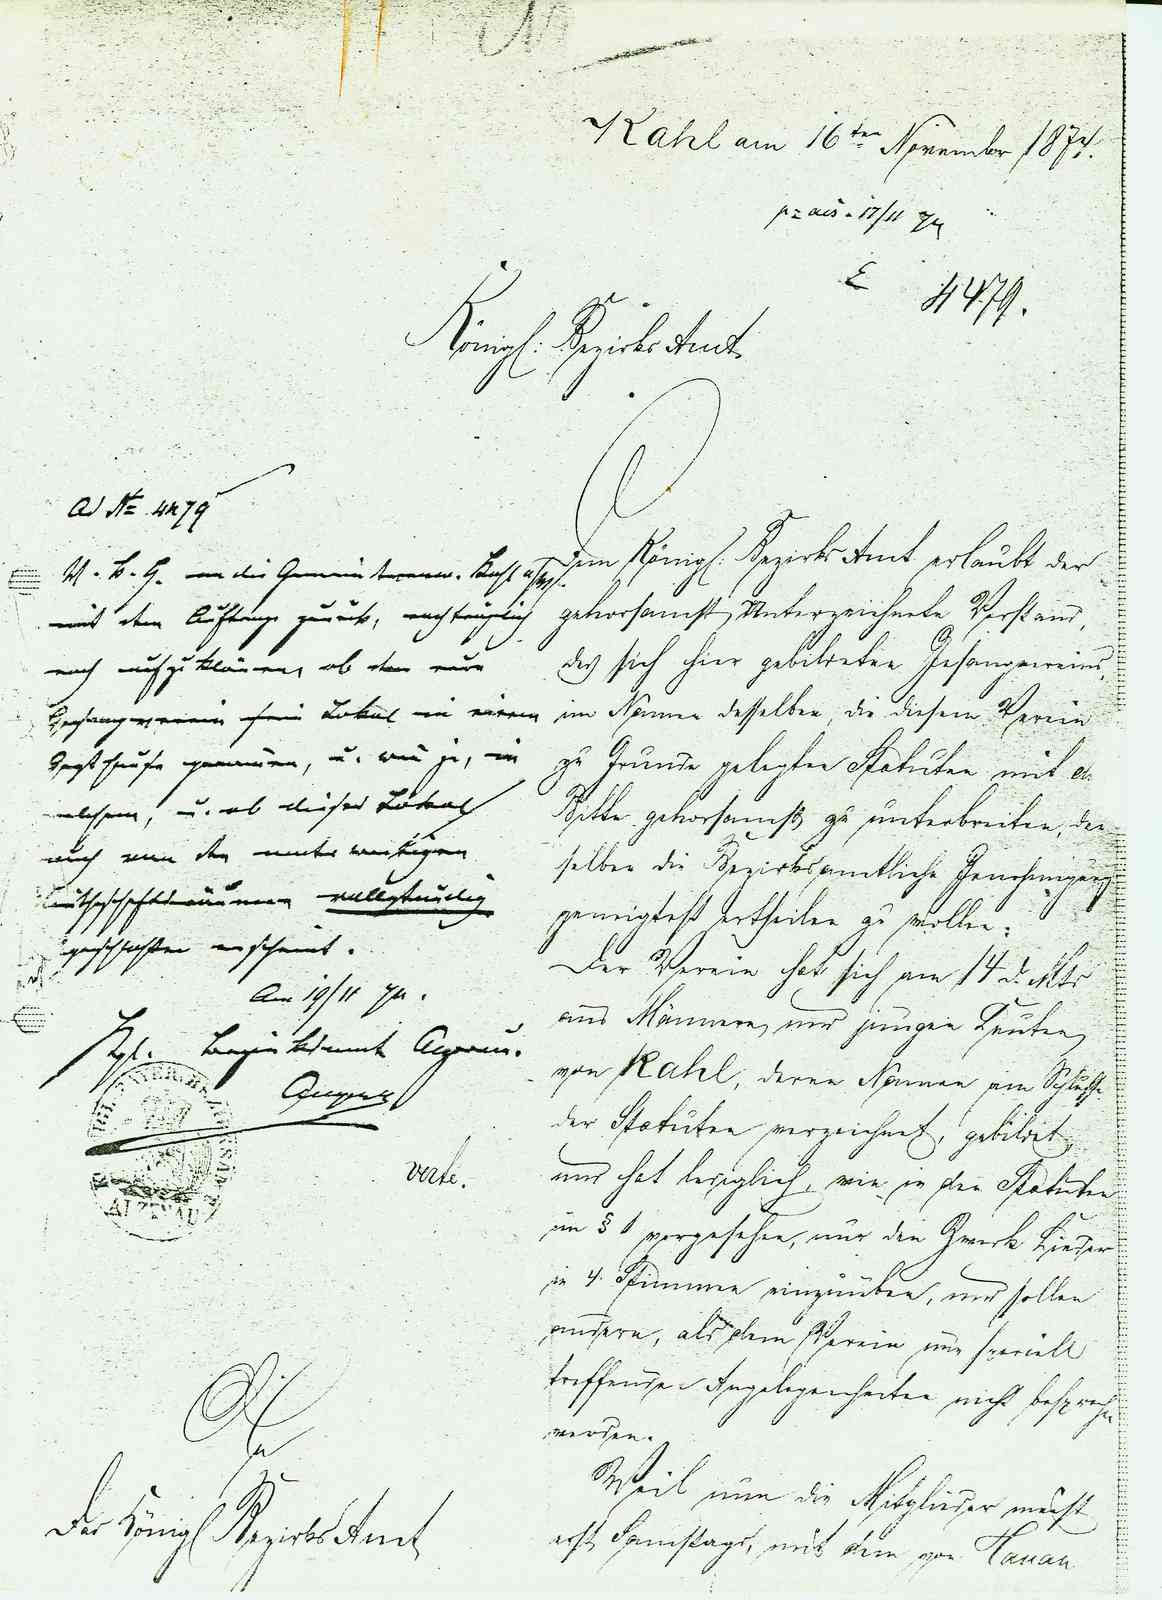 Kahl am 16ten November 1874.
17/11 74
E 4479.
Königl: Bezirks Amt
Ad No 4479
U. b. H. an die Gemeindeverw. Kahl a/M.
mit dem Auftrage zurück, nachträglich
noch aufzuklären, ob der neue
Gesangverein sein Lokal in einem
Gasthause genommen, u. wenn ja, in
welchem, u. ob dieses Lokal
auch von den unterwärtigen
Wirthschaftsräumen vollständig
geschlossen erscheint.
Am 19/11 74.
Kgl. Bezirksamt Alzenau.
verte.
Dem Königl: Bezirks Amt erlaubt der
gehorsamst Unterzeichnete Vorstand,
des sich hier gebildeten Gesangvereins,
im Namen desselben, die diesem Verein
zu Grunde gelegten Statuten mit der
Bitte gehorsamst zu unterbreiten, den
selben die Bezirksamtliche Genehmigung
geneigtest ertheilen zu wollen.
Der Verein hat sich am 14 d. Mts
aus Männern und jungen Leuten
von Kahl, deren Namen am Schlusse
der Statuten verzeichnet, gebildet,
und hat lediglich, wie in den Statuten
im § 1 vorgesehen, nur den Zweck Lieder
in 4 Stimmen einzuüben, und sollen
andere, als dem Verein nur speciell
treffende Angelegenheiten nicht besprochen
werden.
Weil nun die Mitglieder meist
erst Samstags, mit dem von Hanau
An
Das Königl Bezirks Amt
ALZENAU